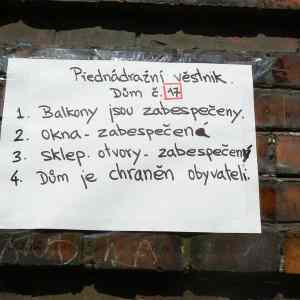 Přednádražní věstník.
Dům č. 17
1. Balkony jsou zabespečeny.
2. okna - zabespečená
3. sklep. otvory - zabespečený
4. Dům je chraněn obyvateli.